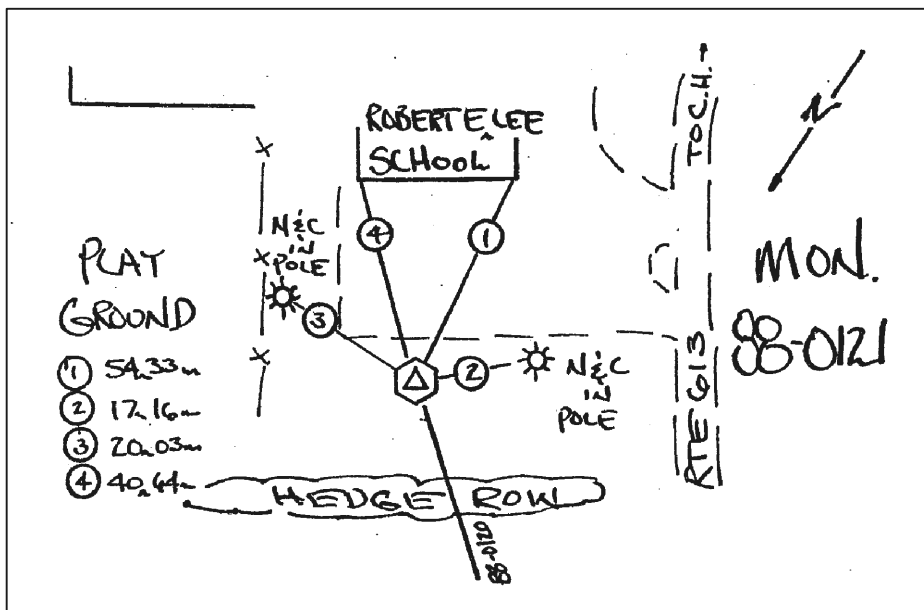 ROBERT E. LEE
SCHOOL
TO C.H. →
N
N & C
IN
POLE
PLAY
GROUND
MON.
88-0121
4
1
3
2
N & C
IN
POLE
RTE 613
1 54.33m
2 17.16m
3 20.03m
4 40.64m
HEDGE ROW
88-0120